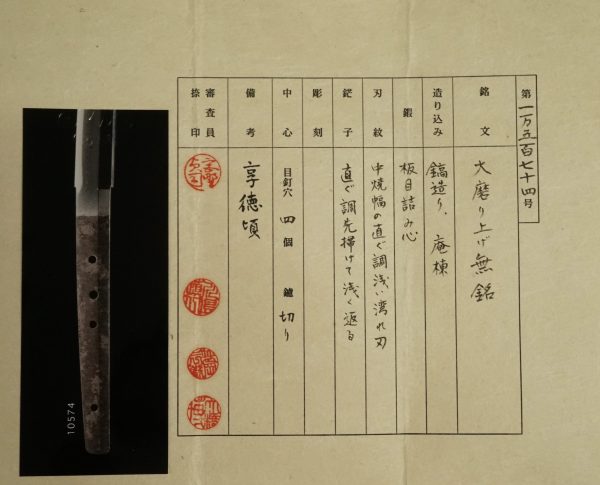 第一万五百七十四号
銘文 大磨り上げ無銘
造り込み 鎬造り、庵棟
鍛 板目詰み心
刃紋 中焼幅の直ぐ調浅い湾れ刃
鋩子 直ぐ調先掃けて浅く返る
彫刻
中心 目釘穴 四個 鑢 切り
備考 享徳頃
審査員捺印
10574